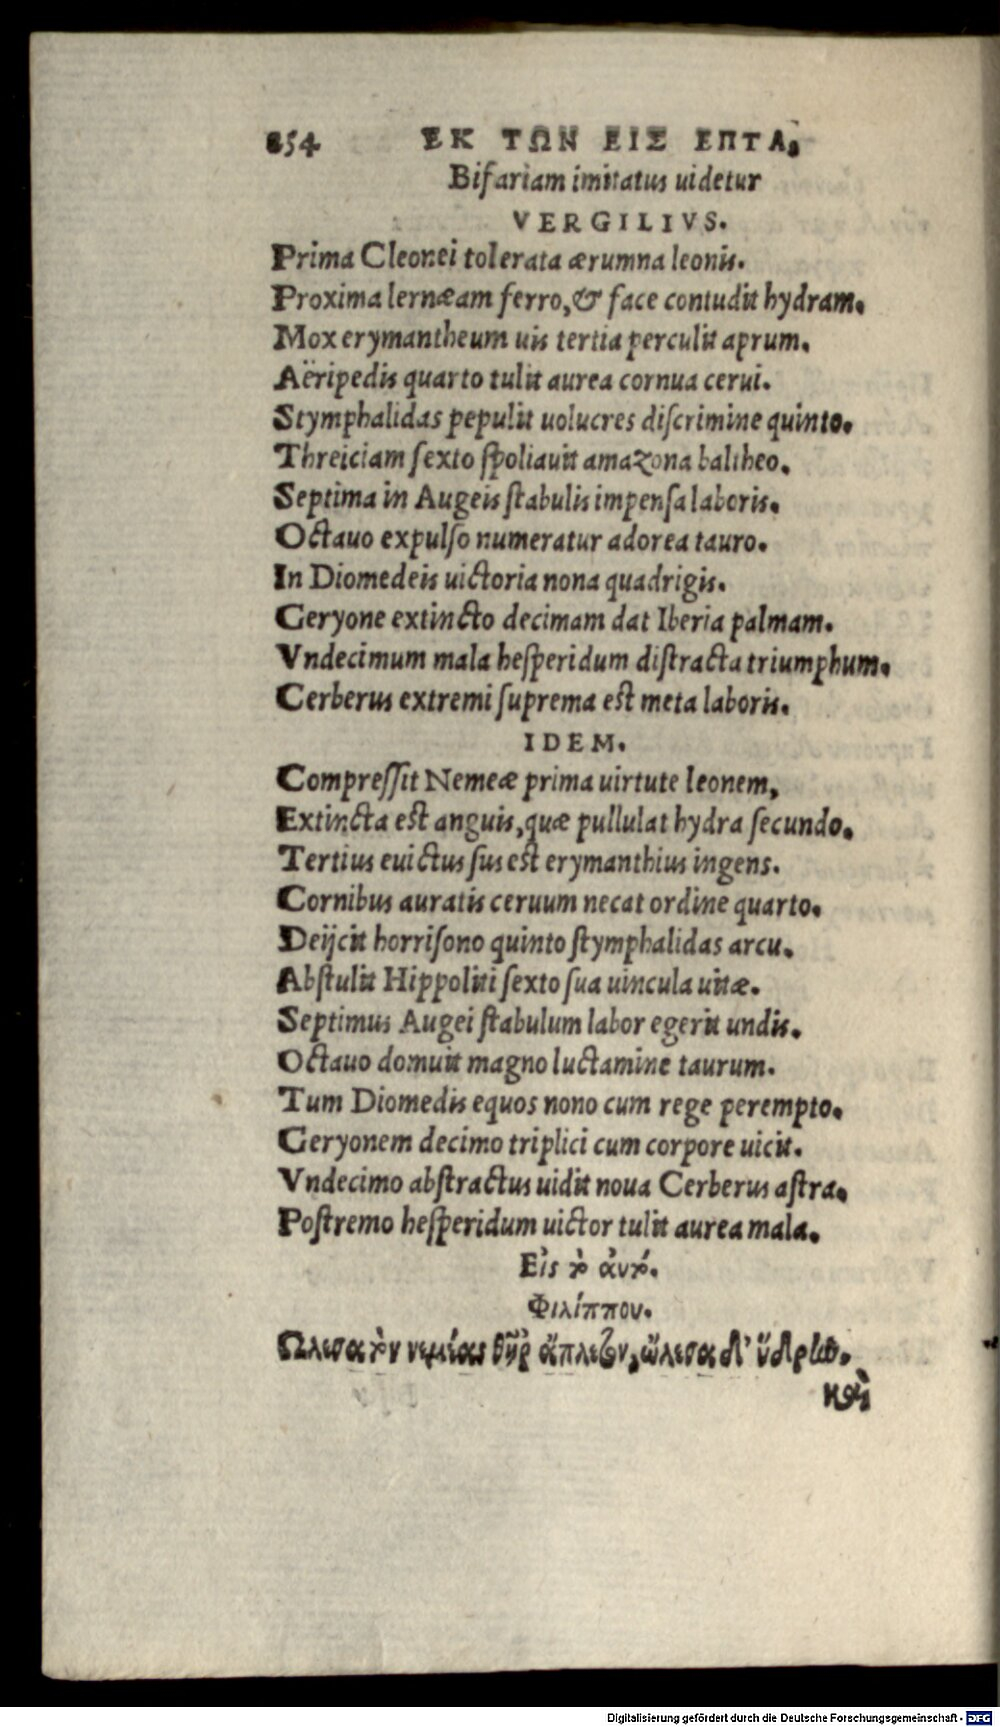 254 ΕΚ ΤΩΝ ΕΙΣ ΕΠΤΑ,
Bifariam imitatus uidetur
VERGILIVS.
Prima Cleonei tolerata ærumna leonis.
Proxima lernæam ferro, & face contudit hydram.
Mox erymantheum uis tertia perculit aprum.
Aëripedis quarto tulit aurea cornua cerui.
Stymphalidas pepulit uolucres diſcrimine quinto.
Threiciam ſexto ſpoliauit amazona baltheo.
Septima in Augeis ſtabulis impenſa laboris.
Octauo expulſo numeratur adorea tauro.
In Diomedeis uictoria nona quadrigis.
Geryone extincto decimam dat Iberia palmam.
Vndecimum mala heſperidum diſtracta triumphum.
Cerberus extremi ſuprema eſt meta laboris.
IDEM.
Compreſſit Nemeæ prima uirtute leonem,
Extincta eſt anguis, quæ pullulat hydra ſecundo.
Tertius euictus ſus eſt erymanthius ingens.
Cornibus auratis ceruum necat ordine quarto.
Deijcit horriſono quinto ſtymphalidas arcu.
Abſtulit Hippoliti ſexto ſua uincula uitæ.
Septimus Augei ſtabulum labor egerit undis.
Octauo domuit magno luctamine taurum.
Tum Diomedis equos nono cum rege perempto.
Geryonem decimo triplici cum corpore uicit.
Vndecimo abſtractus uidit noua Cerberus aſtra.
Poſtremo heſperidum uictor tulit aurea mala.
Εἰς τὸ ἀυτό.
Φιλίππου.
Ωλεσα τὸν νεμέας θῆρ ἄπλετον, ὤλεσα δ' ὕδρην.
καὶ
Digitalisierung gefördert durch die Deutsche Forschungsgemeinschaft - DFG